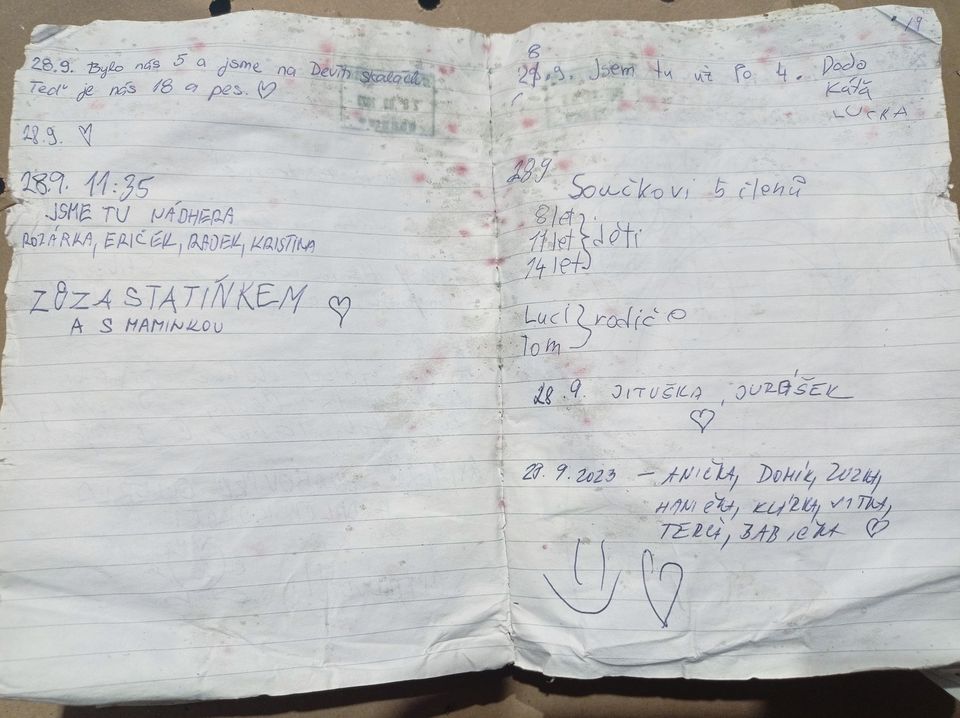 28.9. Bylo nás 5 a jsme na Devíti skalách
Teď je nás 18 a pes. ♡
28.9. ♡
28.9. 11:35
JSME TU NÁDHERA
ROZÁRKA, ERIČEK, RADEK, KRISTINA
A S MAMINKOU
19
28.9. Jsem tu už Po 4. Dodo
Káťa
LUCKA
28.9
Součkovi 5 členů
8 let
11 let } děti
14 let
Luci } rodiče
Tom
28.9. JITUŠKA, JURÁŠEK
♡
29.9.2023 – ANIČKA, DOMÍK, ZUZKA,
HANIČKA, KLÁRKA, VÍTKA,
TERČA, BABIČKA ♡